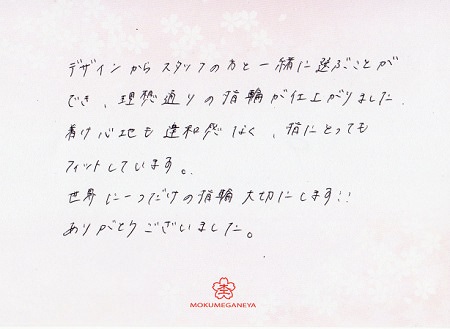 デザインからスタッフの方と一緒に選ぶことが
でき、理想通りの指輪が仕上がりました.
着け心地も違和感なく、指にとっても
フィットしています。
世界に一つだけの指輪大切にします!!
ありがとうございました。
MOKUMEGANEYA